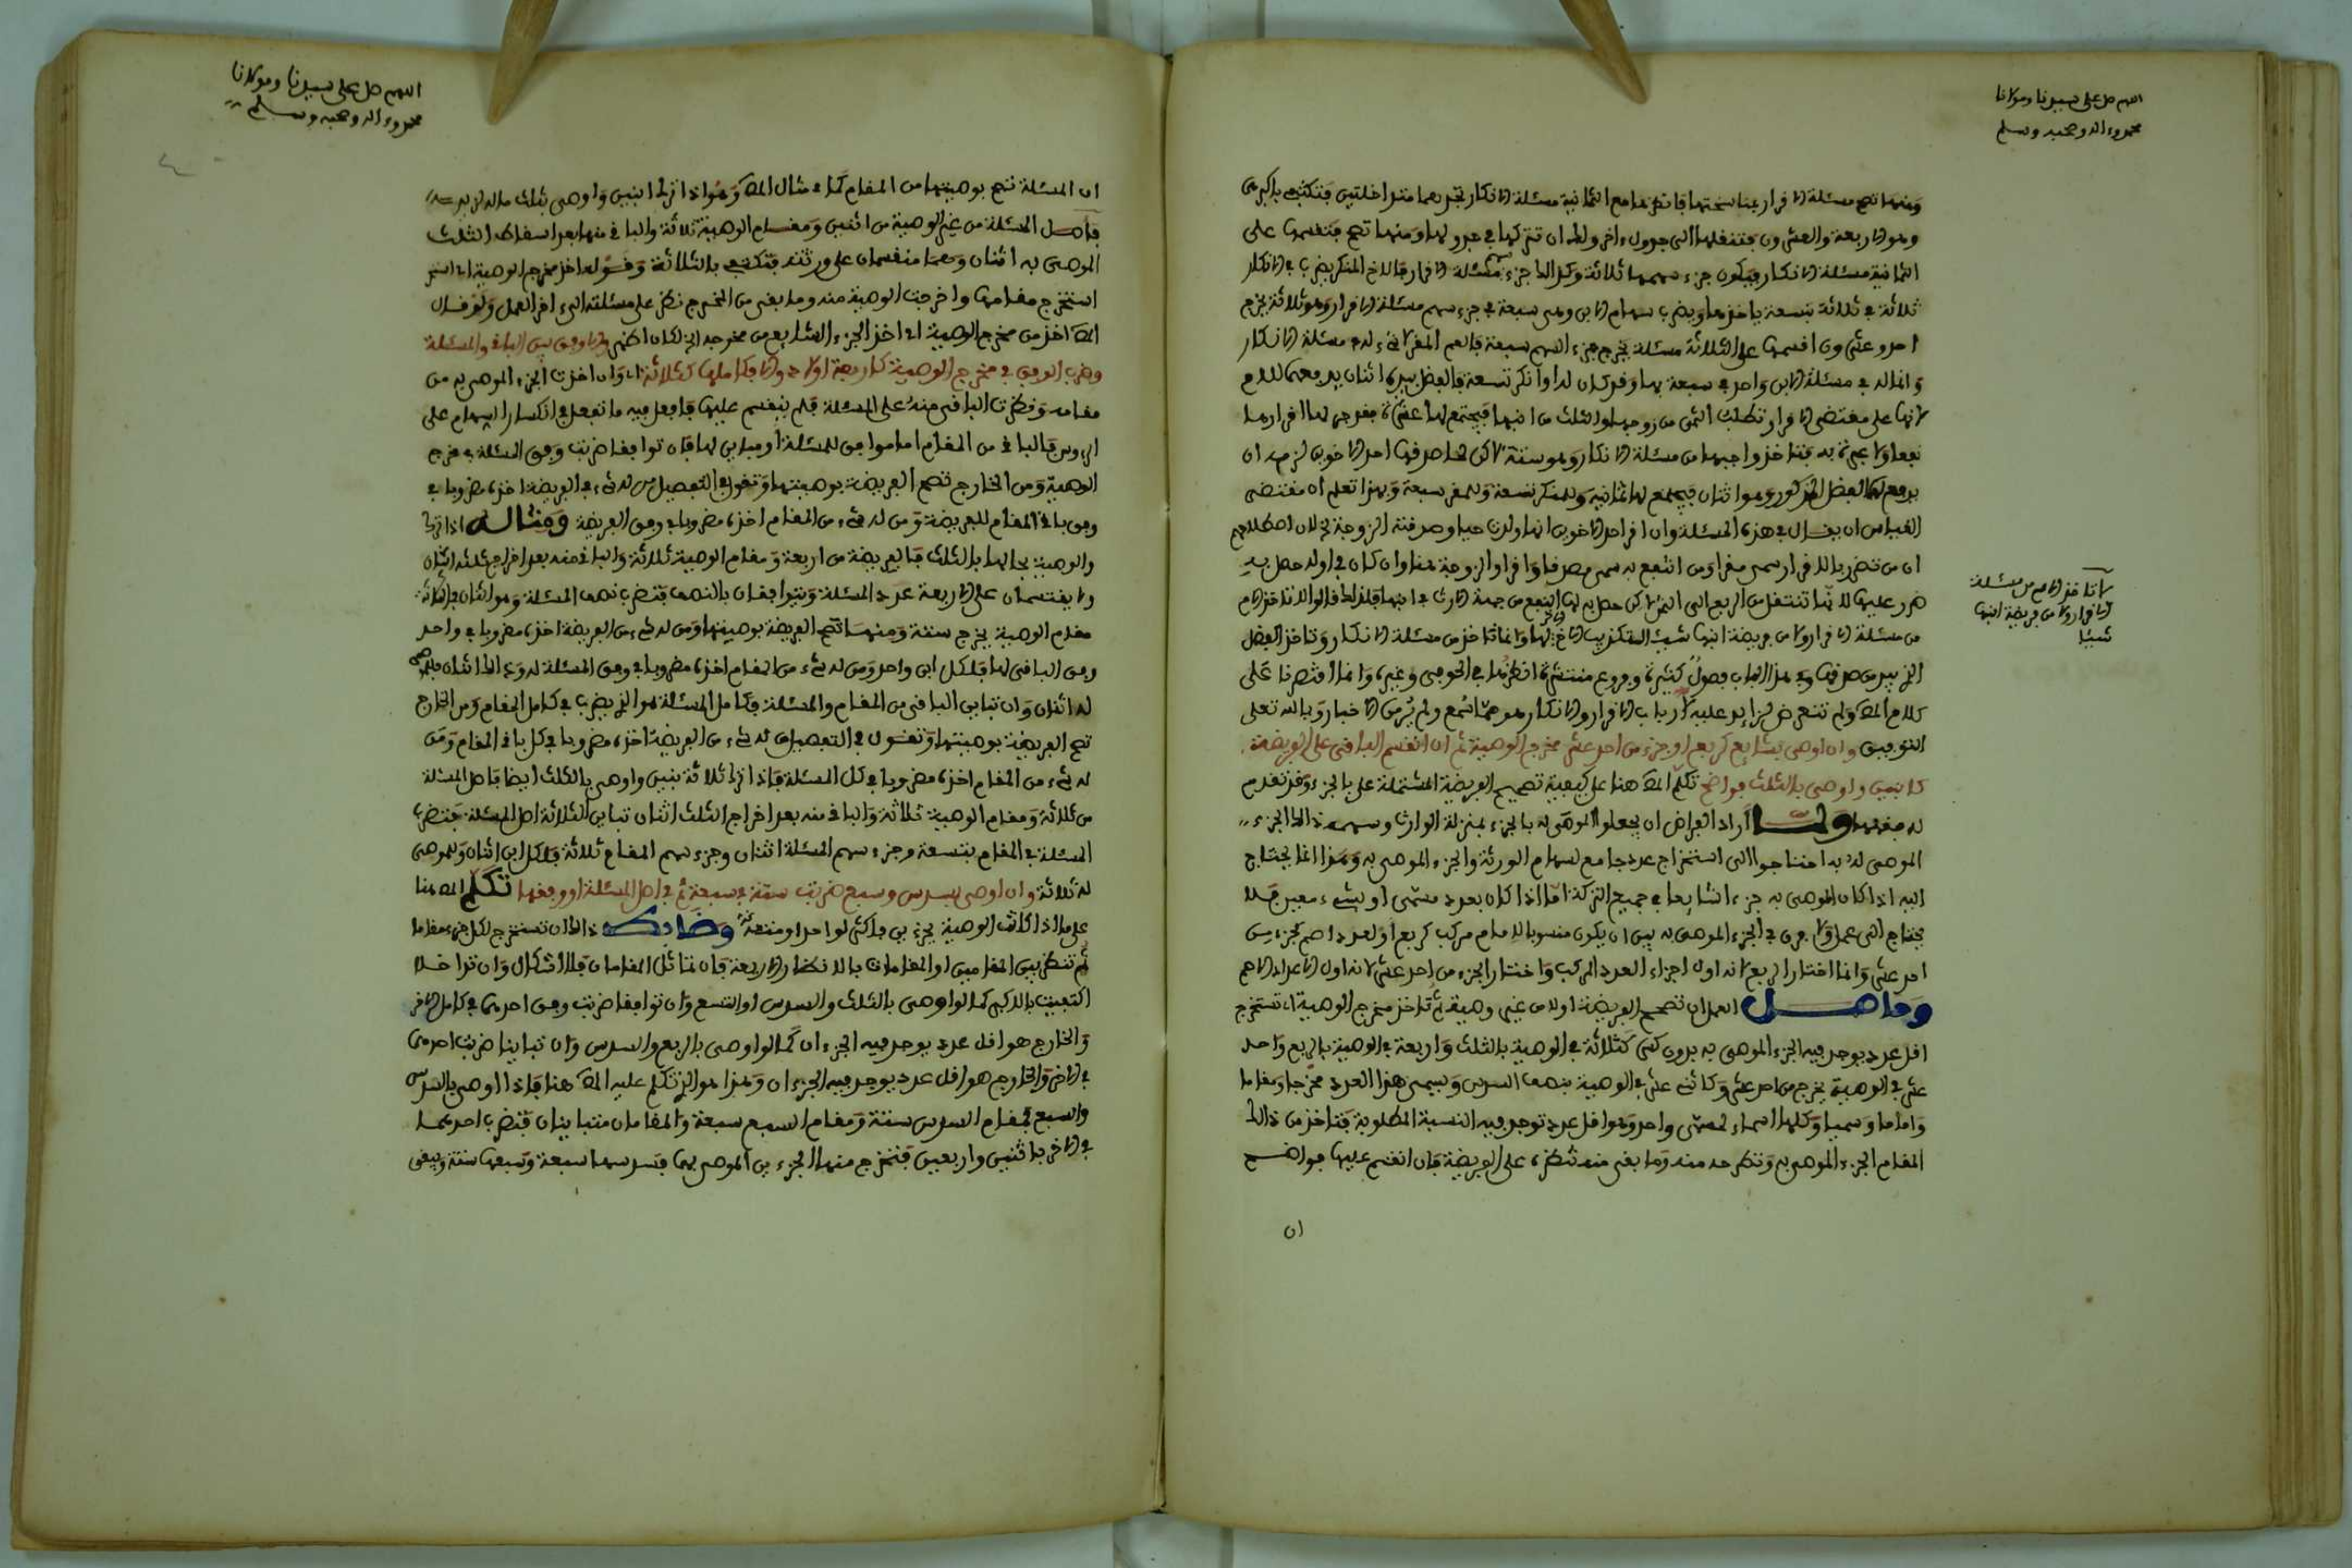 اللهم صل على سيدنا ومولانا
محمد وءاله وصحبه وسلم
ومنها تصح مسئلة الاقرار بمناسختها فانظرها مع الثمانية مسئلة الانكار تجدهما متداخلتين فتكتفي باكبرهما
وهو الاربعة والعشرون فتنقلها الى جدول ءاخر ولك ان تتركها في جدولها ومنها تصح فتقسمها على
الثمانية مسئلة الانكار فيكون جزء سهمها ثلاثة وكذلك جزء مسئلة الاقرار فللاخ المنكر يضرب في الانكار
ثلاثة في ثلاثة بتسعة ياخذها ويضرب سهام الابن وهى سبعة في جزء سهم مسئلة الاقرار وهو ثلاثة يخرج
احد وعشرون اقسمها على الثلاثة مسئلة يخرج جزء السهم سبعة فالعم المقر لا شيء له من مسئلة الانكار
وانما له في مسئلة الابن واحد في سبعة بها وقد كان له لو انكر تسعة فالفضل بيده اثنان يدفعهما للام
لانها على مقتضى الاقرار تطلب الثمن من زوجها والثلث من ابنها فيجتمع لها عشرة
فتاخذ واجبها من مسئلة الانكار وهو ستة لاكن لما صدقها احد الاخوين لزمه ان
يدفع لها الفضل المذكور وهو اثنان فيجتمع لها ثمانية وللمنكر تسعة وللمقر سبعة وبهذا تعلم ان مقتضى
القياس ان يقال في هذه المسئلة وان اقر احد الاخوين انها ولدت حيا وصدقته الزوجة لان اصطلاحهم
ان من تضرر بالاقرار سمى مقرا ومن انتفع به سمى مصدقا والزوجة هنا وان كان في اوله حصل بيد
ضرر عليها لانها تنتقل من الربع الى الثمن لاكن حصل لها النفع من جهة الارث في ابنها فلذلك قالوا لا تاخذ الام
من مسئلة الاقرار ولا من فريضة ابنها شيئا لتكذيب الاخ الاخر لها وانما تاخذ من مسئلة الانكار وتاخذ الفضل
لا تاخذ الام من مسئلة
الاقرار ولا من فريضة ابنها
شيئا
الذي بيد من صدقها وفي هذا الباب فصول كثيرة وفروع منتشرة انظرها في الحوفي وغيره وانما اقتصرنا على
كلام المص ولم نتعرض لزايد عليه لان باب الاقرار والانكار هو مما يسمع ولم يُر من الاخبار وبالله تعلى
التوفيق وان اوصى بشايع كربع او جزء من احد عشر مخرج الوصية ثم ان انقسم الباقى على الفريضة
كابنين واوصى بالثلث فواضح تكلم المص هنا على كيفية تصحيح الفريضة المشتملة على بالجزء وقد تقدم
ولما اراد الفراض ان يجعلوا الموصى له بالجزء بمنزلة الوارث وسهمه ذالك الجزء
الموصى له به احتاجوا الى استخراج عدد جامع لسهام الورثة والجزء الموصى به وهذا انما يحتاج
اليه اذا كان الموصى به جزءا شايعا في جميع التركة اما اذا كان بعدد مسمى او بشيء معين فلا
يحتاج الى عمل ولا فرق في الجزء الموصى به بين ان يكون منسوبا لمقام مركب كربع او لعدد اصم كجزء من
احد عشر وانما اختار الربع لانه اول اجزاء العدد المركب واختار الجزء من احد عشر لانه اول الاعداد الاصم
وحاصل العمل ان تصحح الفريضة اولا من غير وصية ثم تاخذ مخرج الوصية اي تستخرج
اقل عدد يوجد فيه الجزء الموصى به بدون كسر كثلاثة في الوصية بالثلث واربعة في الوصية بالربع واحد
عشر في الوصية بجزء من احد عشر وكاثني عشر في الوصية بنصف السدس ويسمى هذا العدد مخرجا ومقاما
واماما وسميا وكلها اسماء لمسمى واحد وهو اقل عدد توجد فيه النسبة المطلوبة فتاخذ من ذالك
المقام الجزء الموصى به وتطرحه منه وما بقى منه تنظره على الفريضة فان انقسم عليها فواضح
ان
اللهم صل على سيدنا ومولانا
محمد وءاله وصحبه وسلم
ان المسئلة تصح بوصيتها من المقام كما في مثال المص وهو اذا ترك ابنين واوصى بثلث ماله لزيد
فاصل المسئلة من غير الوصية من اثنين ومقام الوصية ثلاثة والباقي منها بعد اسقاط الثلث
الموصى به اثنان وهما منقسمان على ورثته فتكتفي بالثلاثة وقوله اخذ مخرج الوصية اي
استخرج مقامها واخرجت الوصية منه وما بقى من المخرج نظر على مسئلته الى ءاخر العمل ولو قال
المص اخذ من مخرج الوصية اي اخذ الجزء الشايع من مخرجه الخ لكان اظهر والا وفق بين الباقى والمسئلة
وضرب الوفق في مخرج الوصية كاربعة اولاد والا فكاملها كثلاثة اي وان اخذت الجزء الموصى به من
مقامه ونظرت الباقى منه على المسئلة فلم ينقسم عليها فافعل فيه ما تفعل في انكسار السهام على
الرءوس فالباقي من المقام اما موافق للمسئلة او مباين لها فان توافقا ضربت وفق المسئلة في مخرج
الوصية ومن الخارج تصح الفريضة بوصيتها وتقول في التفصيل من له شيء في الفريضة اخذه مضروبا في
وفق باقي المقام للفريضة ومن له شيء من المقام اخذه مضروبا في وفق الفريضة ومثاله اذا ترك
والوصية بحالها بالثلث فالفريضة من اربعة ومقام الوصية ثلاثة والباقي منه بعد اخراج ثلثه اثنان
ولا يقتسمان على الاربعة عدد المسئلة ويتوافقان بالنصف فتضرب نصف المسئلة وهو اثنان في ثلاثة
مقام الوصية يخرج ستة ومنها تصح الفريضة بوصيتها ومن له شيء من الفريضة اخذه مضروبا في واحد
وفق الباقى لها فلكل ابن واحد ومن له شيء من المقام اخذه مضروبا في وفق المسئلة له وذالك اثنان فللموصى
له اثنان وان تباين الباقى من المقام والمسئلة فكامل المسئلة هو الذي يضرب في كامل المقام ومن الخارج
تصح الفريضة بوصيتها وتقول في التفصيل من له شيء من الفريضة اخذه مضروبا في كل باقي المقام ومن
له شيء من المقام اخذه مضروبا في كل المسئلة فاذا ترك ثلاثة بنين واوصى بالثلث ايضا فاصل المسئلة
من ثلاثة ومقام الوصية ثلاثة والباقي منه بعد اخراج الثلث اثنان تباين الثلاثة اصل المسئلة فتضرب
المسئلة في المقام بتسعة وجزء سهم المسئلة اثنان وجزء سهم المقام ثلاثة فلكل ابن اثنان وللموصى
له ثلاثة وان اوصى بسدس وسبع ضربت ستة في سبعة ثم في اصل المسئلة او وفقها تكلم المص هنا
على ما اذا كانت الوصية بجزءين فاكثر لواحد او متعدد وضابط ذالك ان تستخرج لكل جزء مقاما
ثم تنظر بين المقامين او المقامات بالانظار الاربعة فان تماثل المقامان فلا اشكال وان تداخلا
اكتفيت بالاكبر كما لو اوصى بالثلث والسدس او والتسع وان توافقا ضربت وفق احدهما في كامل الاخر
والخارج هو اقل عدد يوجد فيه الجزءان كما لو اوصى بالربع والسدس وان تباينا ضربت احدهما
في الاخر والخارج هو اقل عدد يوجد فيه الجزءان وهذا هو الذي تكلم عليه المص هنا فاذا اوصى بالسدس
والسبع فمقام السدس ستة ومقام السبع سبعة والمقامان متباينان فتضرب احدهما
في الاخر باثنين واربعين فتخرج منها الجزءين الموصى بهما فسدسها سبعة وسبعها ستة ويبقى